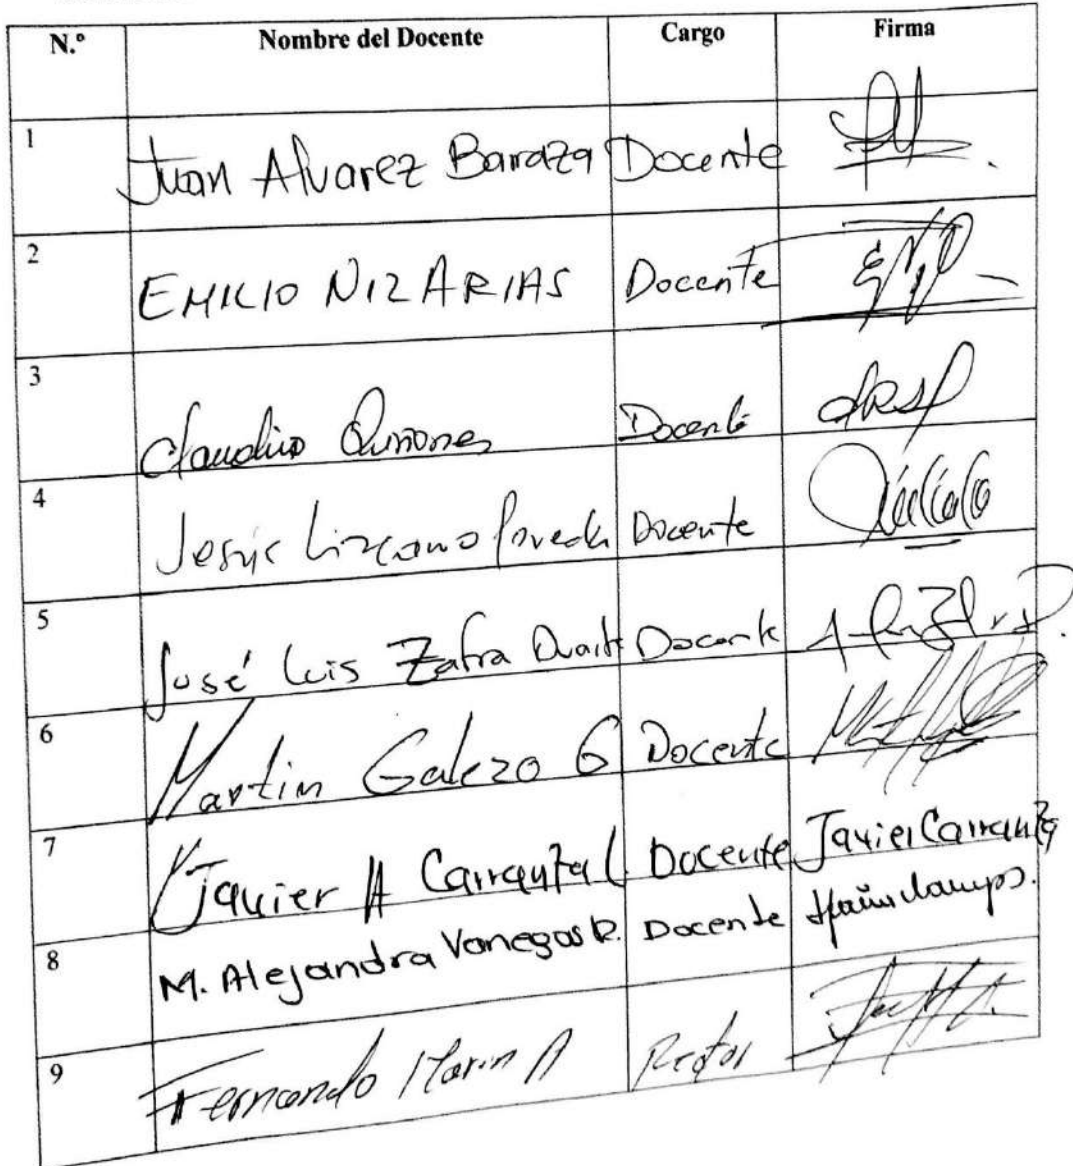 N.° Nombre del Docente Cargo Firma
1 Juan Alvarez Baraza Docente
2 EMILIO NIZ ARIAS Docente
3 Claudio Quinones Docente
4 Jesús Lizcano Poveda Docente
5 José Luis Zafra Duarte Docente
6 Martin Galezo G Docente
7 Javier A Carranza C Docente Javier Carranza
8 M. Alejandra Vanegas R. Docente
9 Fernando Marin A Rector